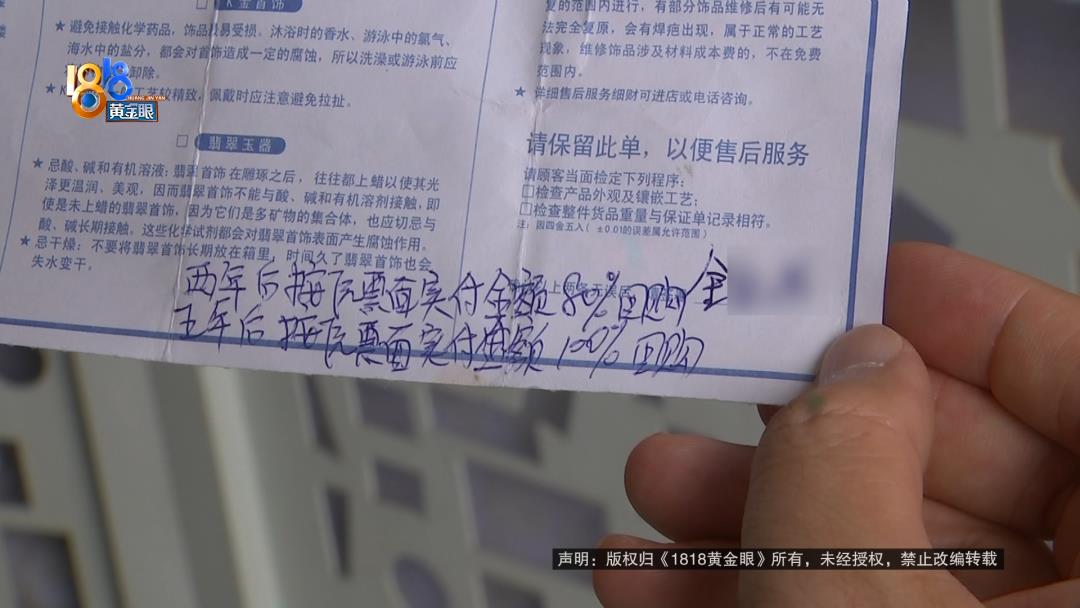 K金首饰
★ 避免接触化学药品，饰品极易受损。沐浴时的香水、游泳中的氯气、
海水中的盐分，都会对首饰造成一定的腐蚀，所以洗澡或游泳前应
卸除。
工艺较精致，佩戴时应注意避免拉扯。
□ 翡翠玉器
★ 忌酸、碱和有机溶液：翡翠首饰在雕琢之后，往往都上蜡以使其光
泽更温润、美观，因而翡翠首饰不能与酸、碱和有机溶剂接触，即
使是未上蜡的翡翠首饰，因为它们是多矿物的集合体，也应切忌与
酸、碱长期接触。这些化学试剂都会对翡翠首饰表面产生腐蚀作用。
★ 忌干燥：不要将翡翠首饰长期放在箱里，时间久了翡翠首饰也会
失水变干。
复的范围内进行，有部分饰品维修后有可能无
法完全复原，会有焊疤出现，属于正常的工艺
现象，维修饰品涉及材料成本费的，不在免费
范围内。
★ 详细售后服务细则可进店或电话咨询。
请保留此单，以便售后服务
请顾客当面检定下列程序：
□检查产品外观及镶嵌工艺；
□检查整件货品重量与保证单记录相符。
注：因四舍五入（±0.01的误差属允许范围）
以上两条无误
两年后按反票面实付金额80%回购 金
五年后按反票面实付金额100%回购
1818
HUANG JIN YAN
黄金眼
声明：版权归《1818黄金眼》所有，未经授权，禁止改编转载